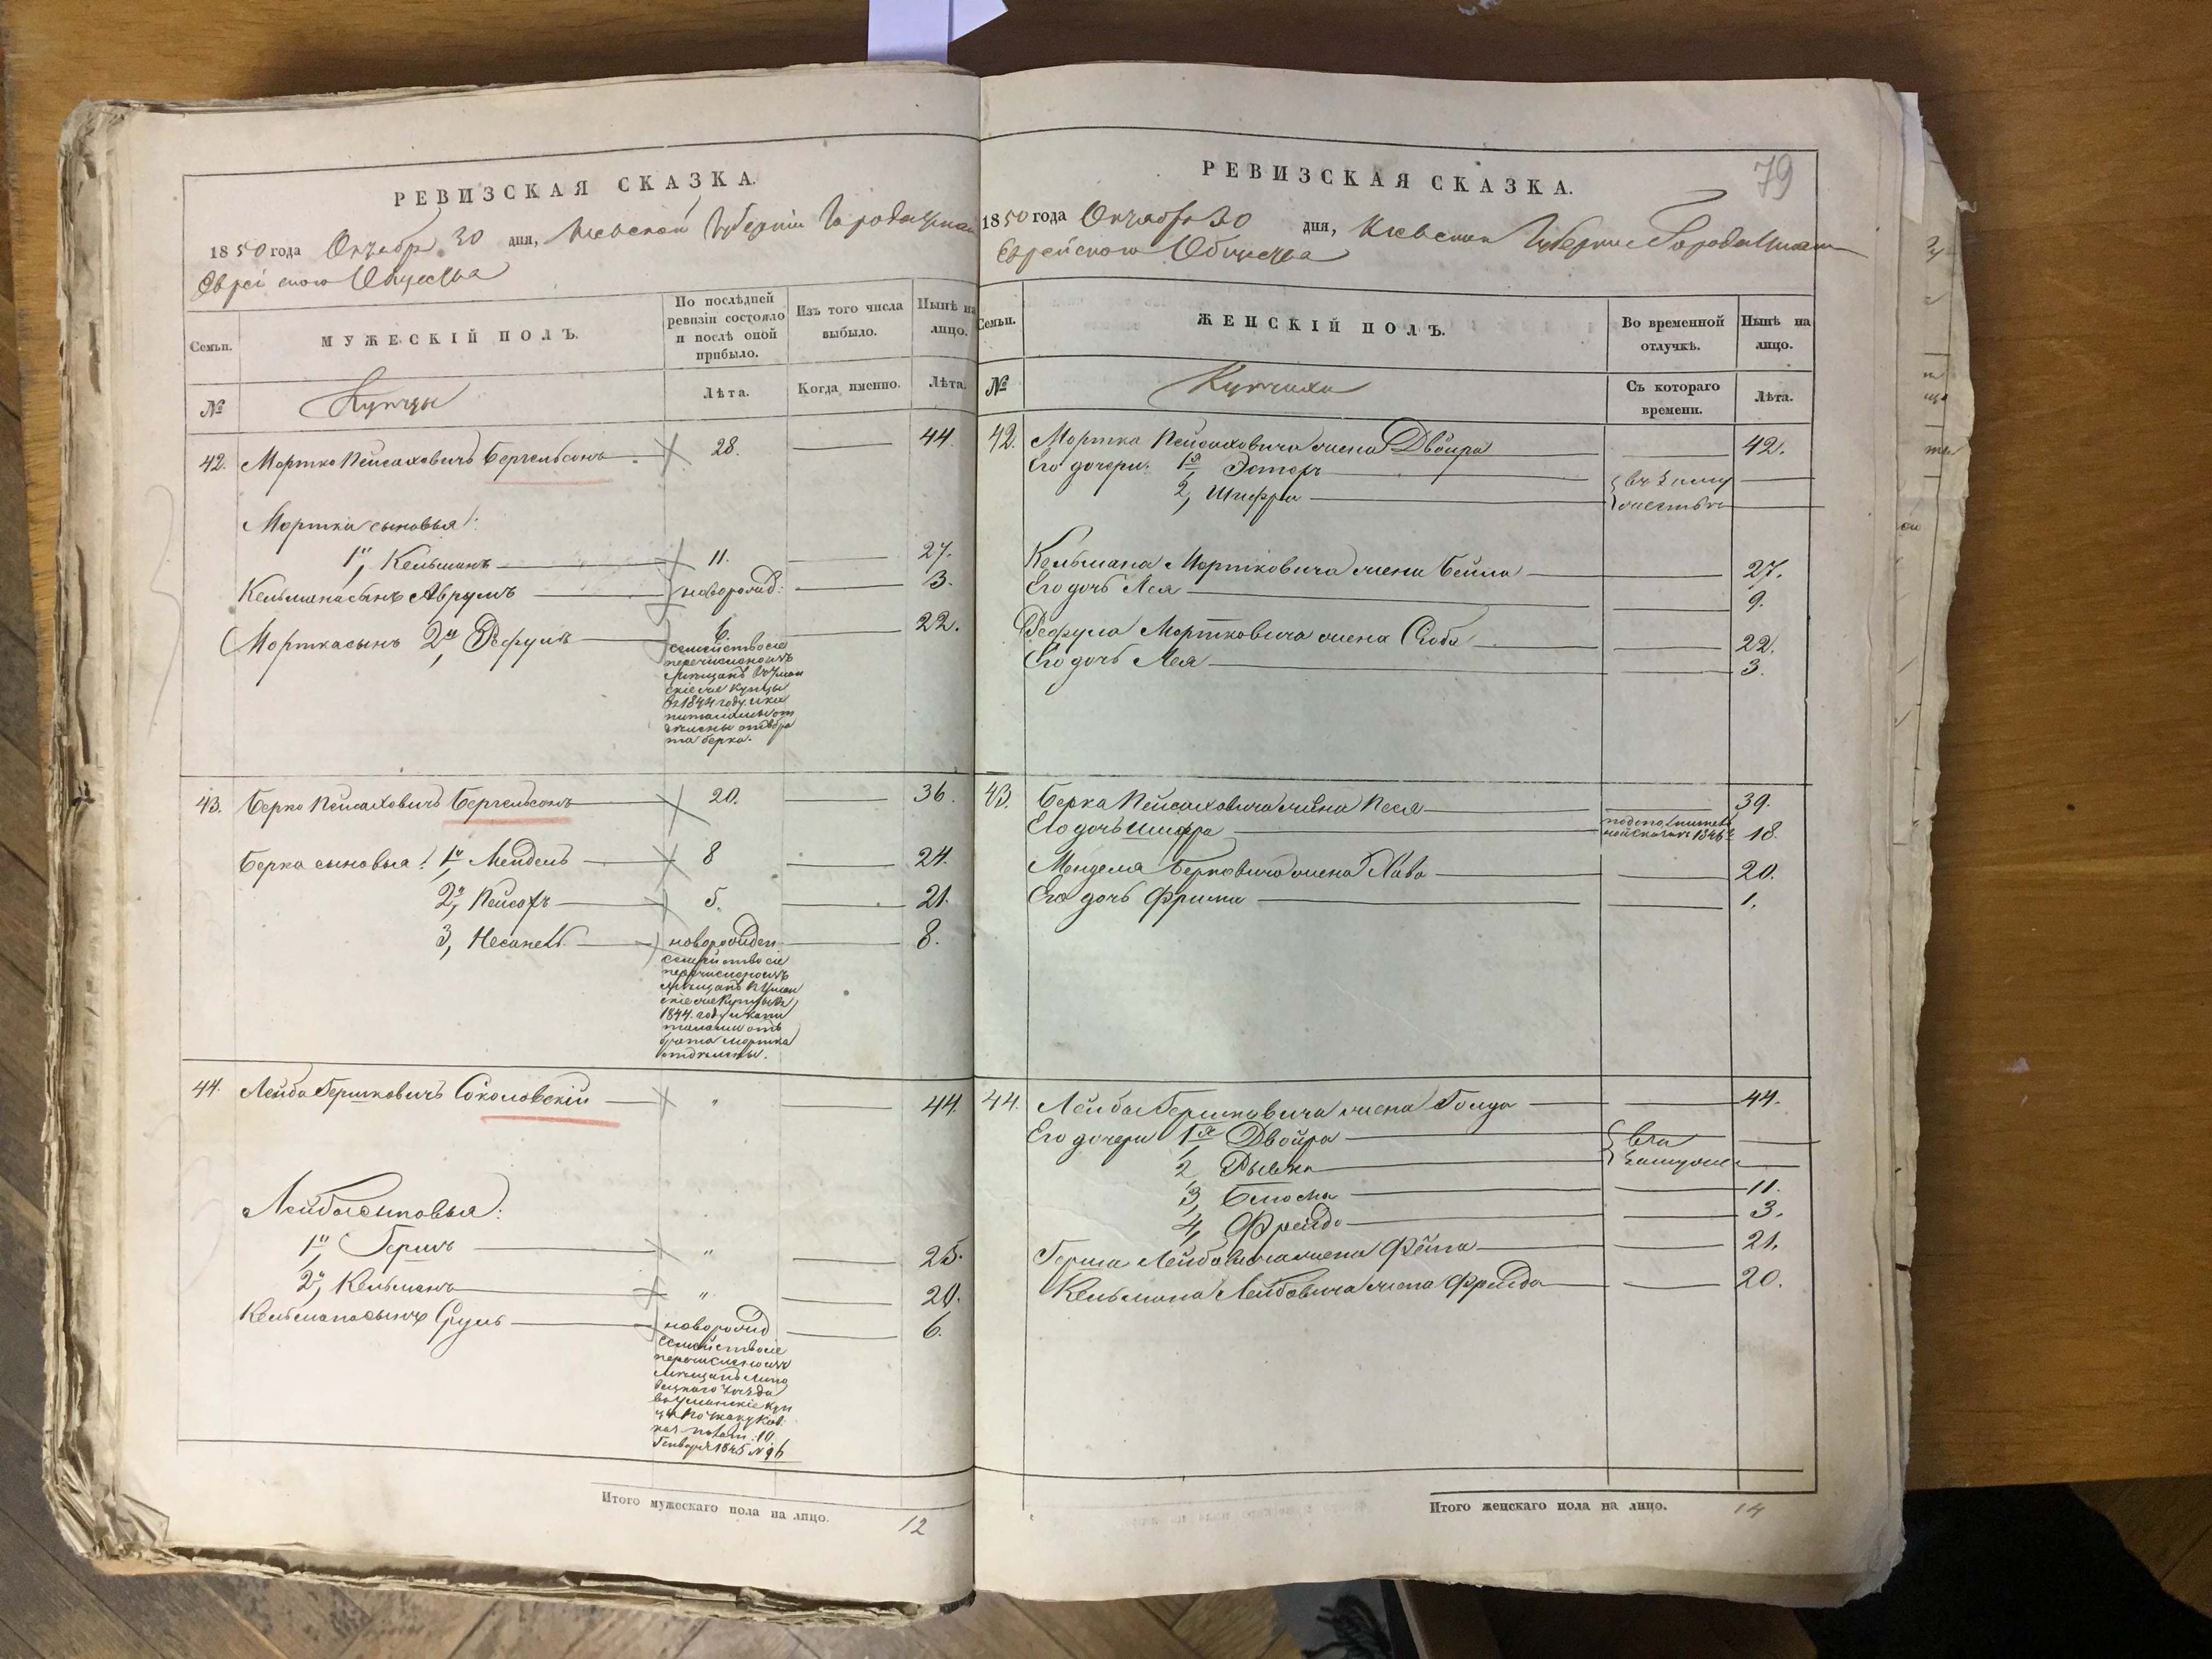 РЕВИЗСКАЯ СКАЗКА.
1850 года Октября 30 дня, Киевской Губерніи
Еврейского Общества
Семьи.
МУЖЕСКІЙ ПОЛЪ.
По послѣдней ревизіи состояло и послѣ оной прибыло.
Изъ того числа выбыло.
Нынѣ на лицо.
№
Купцы
Лѣта.
Когда именно.
Лѣта.
42. Мортко Пейсаховичъ Бергельсонъ 28. 44.
Мортка сыновья:
1й, Кельманъ 11. 27.
Кельмана сынъ Аврумъ новорожд: 3.
Мортка сынъ 2й, Рефулъ 6. 22.
семейство сіе
перечислено изъ
мещанъ в Уман
скіе же купцы
въ 1844 году и ка
питаломъ от
от бра
та Берка.
43. Берко Пейсаховичъ Бергельсонъ 20. 36.
Берка сыновья: 1й, Мендель 8 24.
2й, Пейсахъ 5. 21.
3, Несанель новорожден. 8.
семейство сіе
перечислено изъ
мещанъ в Уман
скіе же купцы въ
1844. году и капи
таломъ отъ
брата Мортка
отделены.
44. Лейба Гершковичъ Соколовскій " 44.
Лейба сыновья: "
1й, Гершъ " 25.
2й, Кельманъ " 20.
Кельмана сынъ Сруль новорожд 6.
семейство сіе
перечислено изъ
мещанъ Липо
вецкого уезда
в Уманскіе куп
цы по указу Каз.
пал. 10
Генваря 1845 № 96
Итого мужескаго пола на лицо. 12
79
РЕВИЗСКАЯ СКАЗКА.
1850 года Октября 30 дня, Киевской Губерніи
Еврейского Общества
Семьи.
ЖЕНСКІЙ ПОЛЪ.
Во временной отлучкѣ.
Нынѣ на лицо.
№
Купчихи
Съ котораго времени.
Лѣта.
42. Мортка Пейсаховича жена Двойра 42.
Его дочери: 1я Эстеръ в заму
2, Шифра жестве
Кельмана Мортковича жена Бейла 27.
Его дочь Лея 9.
Рефула Мортковича жена Слоба 22.
Его дочь Лея 3.
43. Берка Пейсаховича жена Песя 39.
Его дочь Шифра 18.
Менделя Берковича жена Хава 20.
Его дочь Фрима 1.
44. Лейба Гершковича жена Голда 44.
Его дочери 1я Двойра в за
2, Рывка замуже
3, Блюма 11.
4, Фрейда 3.
Герша Лейбовича жена Фейга 21.
Кельмана Лейбовича жена Фрейда 20.
Итого женскаго пола на лицо. 14